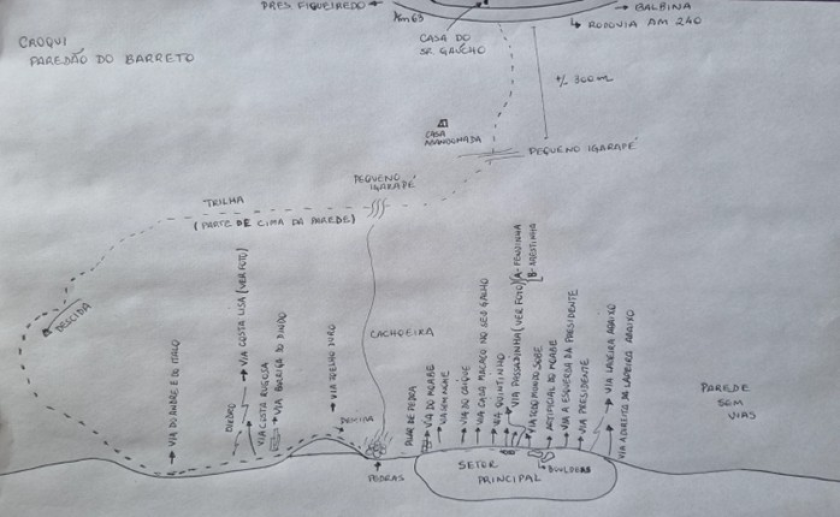 PRES FIGUEIREDO
Km 63
BALBINA
RODOVIA AM 240
CROQUI
PAREDÃO DO BARRETO
CASA DO
SR GAÚCHO
+/- 300m
CASA
ABANDONADA
PEQUENO IGARAPÉ
PEQUENO
IGARAPÉ
TRILHA
(PARTE DE CIMA DA PAREDE)
DESCIDA
CACHOEIRA
VIA DU ANDRE E DO ITALO
DIEDRO
VIA COSTA LISA (VER FOTO)
VIA COSTA RUGOSA
VIA BARRIGA DO DINDO
VIA JOELHO DURO
DESCIDA
PEDRAS
PILAR DE PEDRA
VIA DO MCABE
VIA SEM NOME
VIA DO CAIQUE
VIA CADA MACACO NO SEU GALHO
VIA QUINTINHO
VIA PASSADINHA (VER FOTO)
A- FENDINHA
B- ARESTINHA
VIA TODO MUNDO SOBE
ARTIFICIAL DO MCABE
VIA A ESQUERDA DA PRESIDENTE
VIA PRESIDENTE
VIA LADEIRA ABAIXO
VIA A DIREITA DA LADEIRA ABAIXO
PAREDE
SEM
VIAS
SETOR
PRINCIPAL
BOULDERS